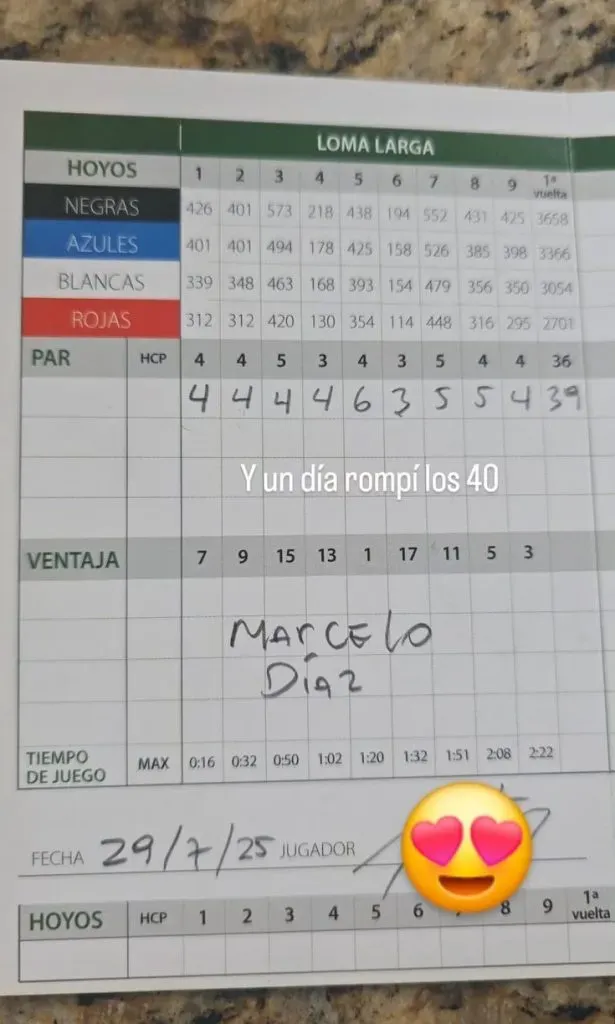 LOMA LARGA
HOYOS 1 2 3 4 5 6 7 8 9 1ª vuelta
NEGRAS 426 401 573 218 438 194 552 431 425 3658
AZULES 401 401 494 178 425 158 526 385 398 3366
BLANCAS 339 348 463 168 393 154 479 356 350 3054
ROJAS 312 312 420 130 354 114 448 316 295 2701
PAR HCP 4 4 5 3 4 3 5 4 4 36
4 4 4 4 6 3 5 5 4 39
Y un día rompí los 40
VENTAJA 7 9 15 13 1 17 11 5 3
MARCELO
DíAZ
TIEMPO
DE JUEGO MAX 0:16 0:32 0:50 1:02 1:20 1:32 1:51 2:08 2:22
FECHA 29/7/25 JUGADOR
HOYOS HCP 1 2 3 4 5 6 8 9 1ª vuelta